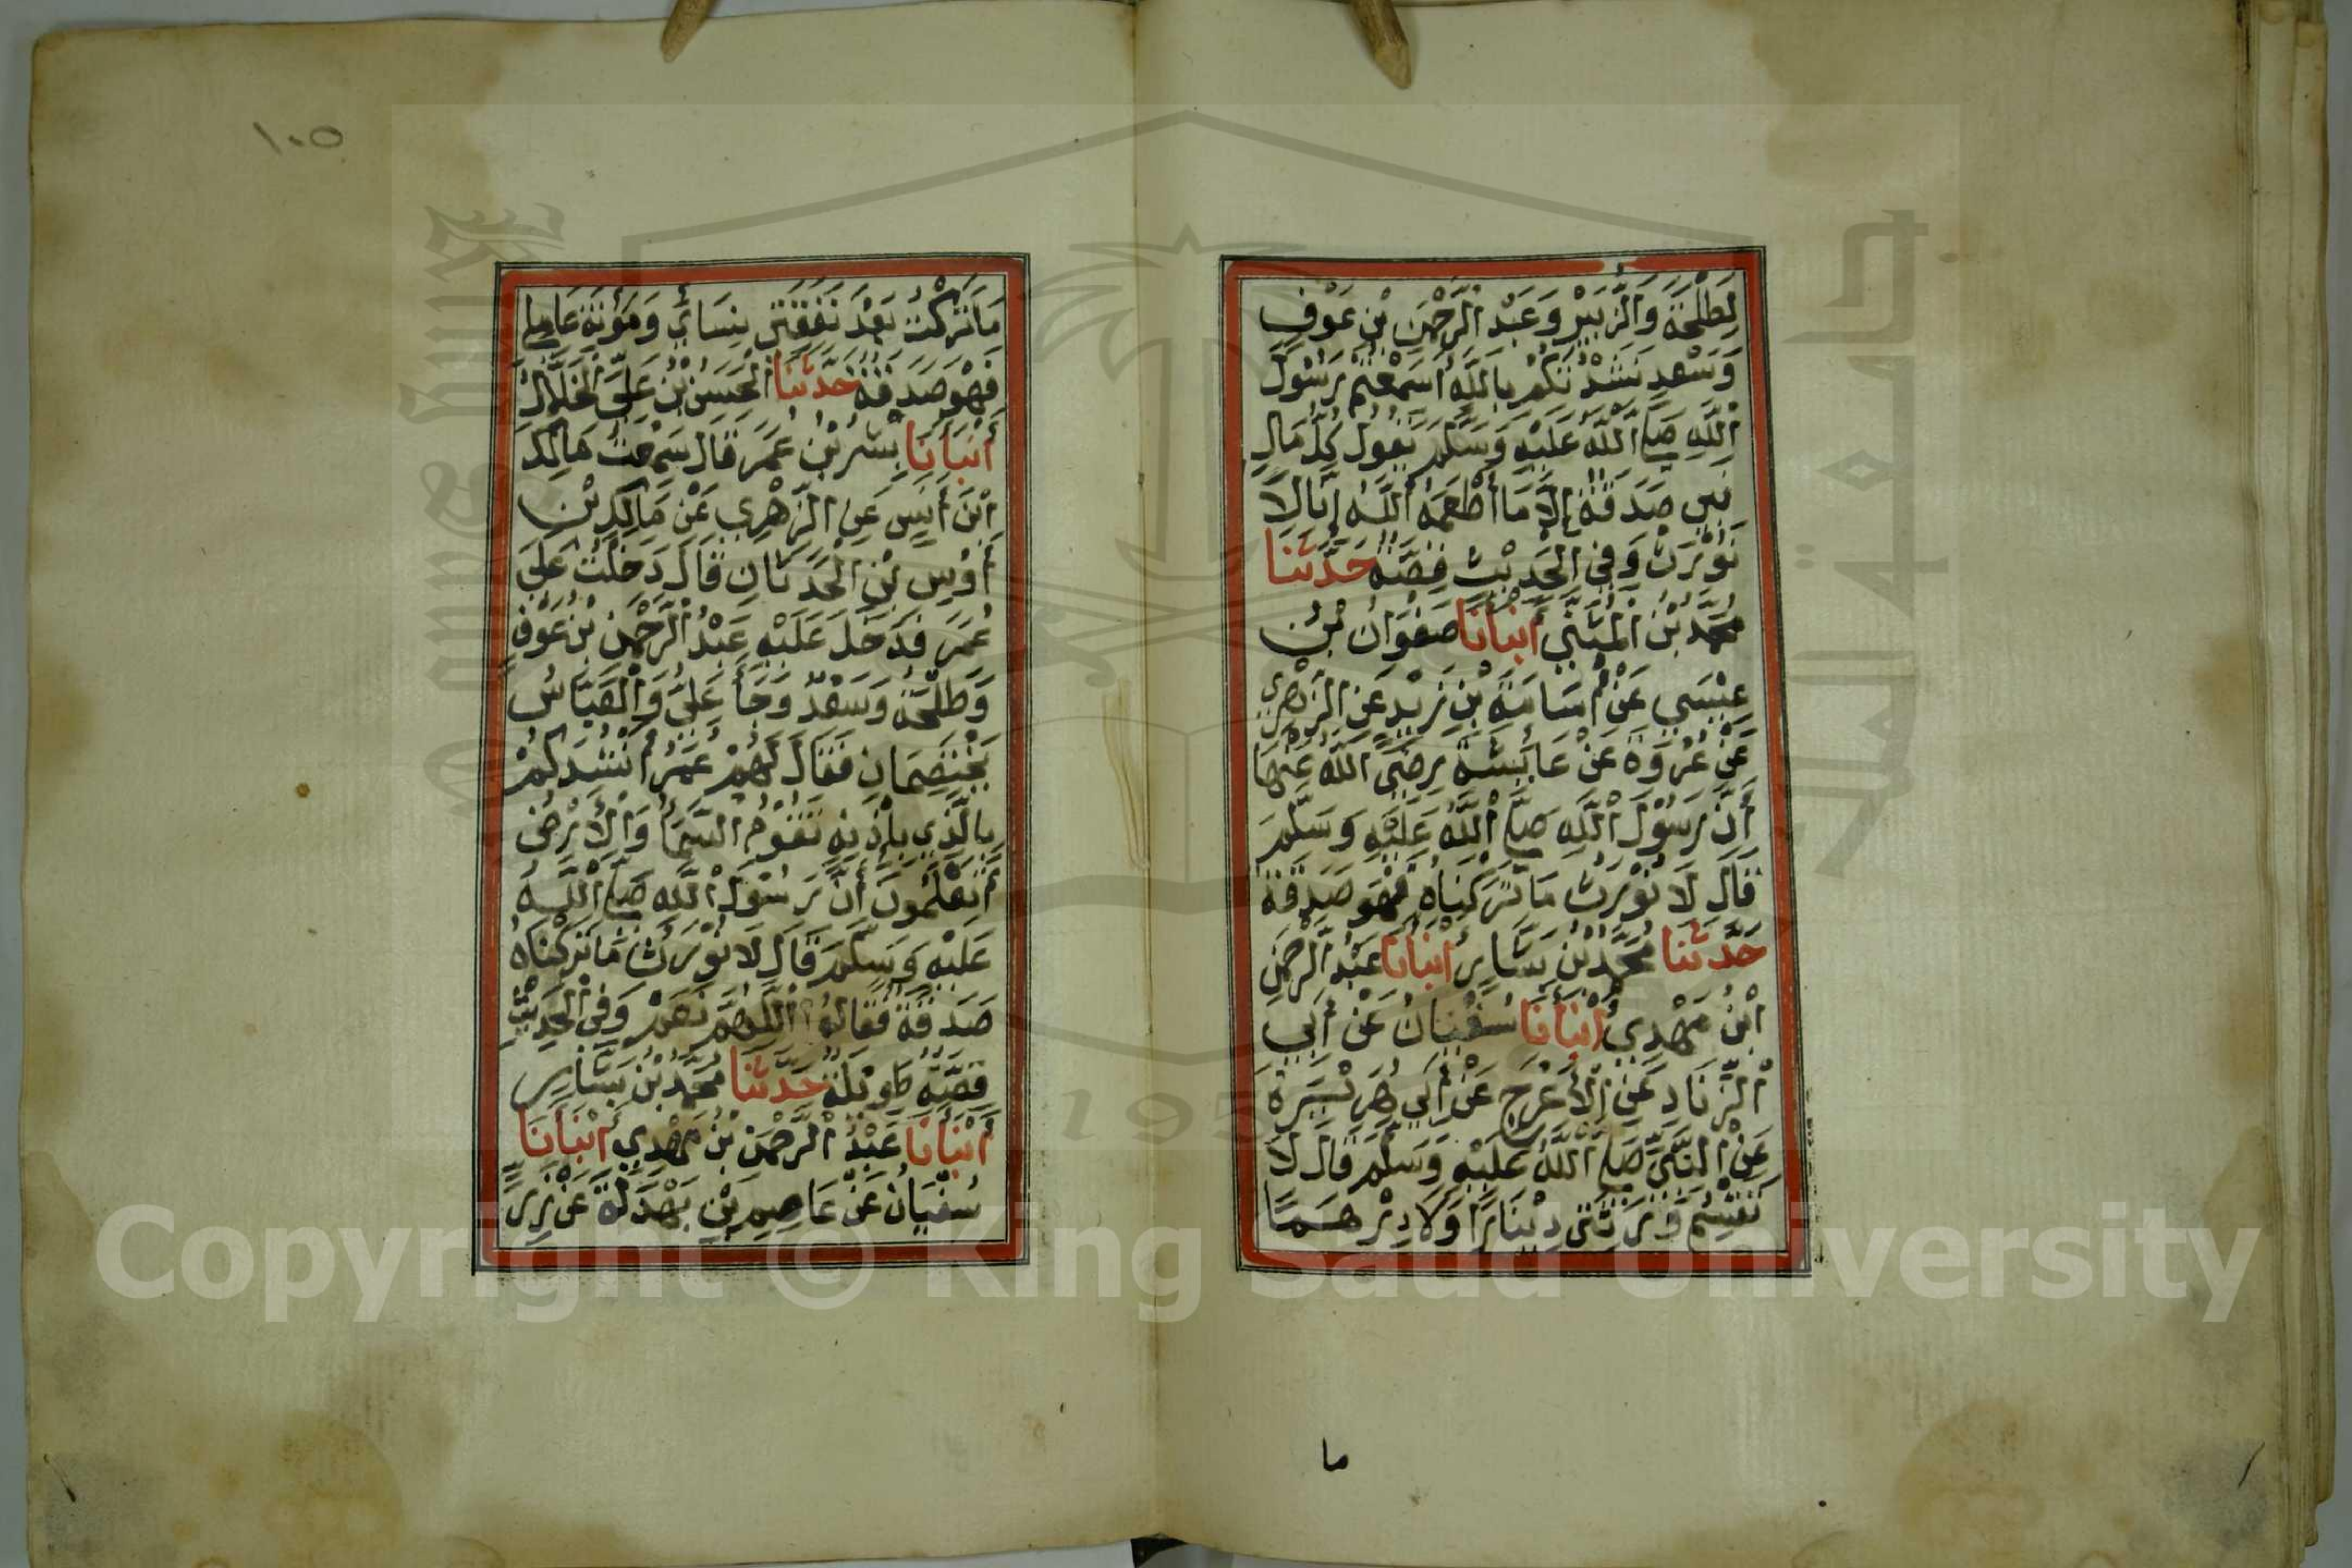 لِطَلْحَةَ وَالزُّبَيْرِ وَعَبْدِ الرَّحْمٰنِ بْنِ عَوْفٍ
وَسَعْدٍ نَشَدْتُكُمْ بِاللّٰهِ أَسَمِعْتُمْ رَسُولَ
اللّٰهِ صَلَّى اللّٰهُ عَلَيْهِ وَسَلَّمَ يَقُولُ كُلُّ مَالِ
نَبِيٍّ صَدَقَةٌ إِلَّا مَا أَطْعَمَهُ اللّٰهُ إِنَّا لَا
نُوْرَثُ وَفِي الْحَدِيْثِ قِصَّةٌ حَدَّثَنَا
مُحَمَّدُ بْنُ الْمُثَنَّى أَنْبَأَنَا صَفْوَانُ بْنُ
عِيْسَى عَنْ أُسَامَةَ بْنِ زَيْدٍ عَنِ الزُّهْرِيِّ
عَنْ عُرْوَةَ عَنْ عَائِشَةَ رَضِيَ اللّٰهُ عَنْهَا
أَنَّ رَسُوْلَ اللّٰهِ صَلَّى اللّٰهُ عَلَيْهِ وَسَلَّمَ
قَالَ لَا نُوْرَثُ مَا تَرَكْنَاهُ فَهْوَ صَدَقَةٌ
حَدَّثَنَا مُحَمَّدُ بْنُ بَشَّارٍ أَنْبَأَنَا عَبْدُ الرَّحْمٰنِ
ابْنُ مَهْدِيٍّ أَنْبَأَنَا سُفْيَانُ عَنْ أَبِي
الزِّنَادِ عَنِ الْأَعْرَجِ عَنْ أَبِي هُرَيْرَةَ
عَنِ النَّبِيِّ صَلَّى اللّٰهُ عَلَيْهِ وَسَلَّمَ قَالَ لَا
تَقْسِمُ وَرَثَتِي دِيْنَارًا وَلَا دِرْهَمًا
ما
١٠٥
مَا تَرَكْتُ بَعْدَ نَفَقَةِ نِسَائِي وَمَؤُنَةِ عَامِلِي
فَهْوَ صَدَقَةٌ حَدَّثَنَا الْحَسَنُ بْنُ عَلِيٍّ الْخَلَّالُ
أَنْبَأَنَا بِشْرُ بْنُ عُمَرَ قَالَ سَمِعْتُ مَالِكَ
ابْنَ أَنَسٍ عَنِ الزُّهْرِيِّ عَنْ مَالِكِ بْنِ
أَوْسِ بْنِ الْحَدَثَانِ قَالَ دَخَلْتُ عَلَى
عُمَرَ فَدَخَلَ عَلَيْهِ عَبْدُ الرَّحْمٰنِ بْنُ عَوْفٍ
وَطَلْحَةُ وَسَعْدٌ وَجَأَ عَلِيٌّ وَالْعَبَّاسُ
يَخْتَصِمَانِ فَقَالَ لَهُمْ عُمَرُ أَنْشُدُكُمْ
بِالَّذِي بِإِذْنِهِ تَقُوْمُ السَّمَأُ وَالْأَرْضُ
أَتَعْلَمُونَ أَنَّ رَسُوْلَ اللّٰهِ صَلَّى اللّٰهُ
عَلَيْهِ وَسَلَّمَ قَالَ لَا نُوْرَثُ مَا تَرَكْنَاهُ
صَدَقَةٌ فَقَالُوْا اللّٰهُمَّ نَعَمْ وَفِي الْحَدِيْثِ
قِصَّةٌ طَوِيْلَةٌ حَدَّثَنَا مُحَمَّدُ بْنُ بَشَّارٍ
أَنْبَأَنَا عَبْدُ الرَّحْمٰنِ بْنُ مَهْدِيٍّ أَنْبَأَنَا
سُفْيَانُ عَنْ عَاصِمِ بْنِ بَهْدَلَةَ عَنْ زِرِّ
Copyright © King Saud University